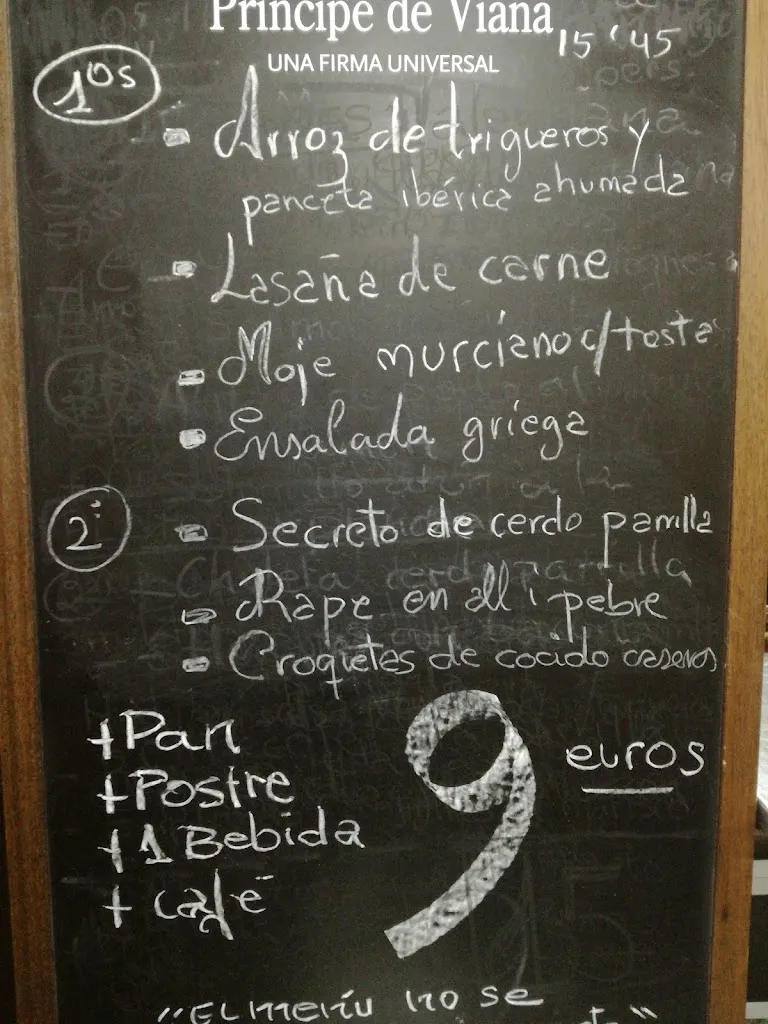 Príncipe de Viana
15'45
UNA FIRMA UNIVERSAL
1os
- Arroz de trigueros y
panceta ibérica ahumada
- Lasaña de carne
- Moje murciano c/tosta
- Ensalada griega
2º
- Secreto de cerdo parrilla
- Rape en all i pebre
- Croquetes de cocido caseros
+Pan
+Postre
+1 Bebida
+ café
9 euros
"El menú no se